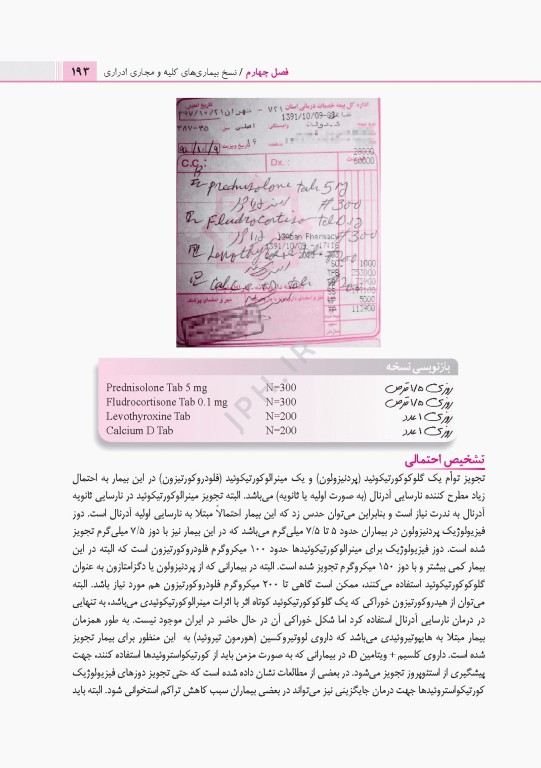 فصل چهارم / نسخ بیماری‌های کلیه و مجاری ادراری ۱۹۳
اداره کل بیمه خدمات درمانی استان
1391/10/09
20000
60000
C.C.: Dx. :
prednisolone tab 5 mg
#300
Fludrocortiso
Pharmacy #300
1391/10/09
1000
5000
113900
بازنویسی نسخه
Prednisolone Tab 5 mg N=300 روزی ۱/۵ قرص
Fludrocortisone Tab 0.1 mg N=300 روزی ۱/۵ قرص
Levothyroxine Tab N=200 روزی ۱ عدد
Calcium D Tab N=200 روزی ۱ عدد
JPH.IR
تشخیص احتمالی
تجویز توأم یک گلوکوکورتیکوئید (پردنیزولون) و یک مینرالوکورتیکوئید (فلودروکورتیزون) در این بیمار به احتمال
زیاد مطرح کننده نارسایی آدرنال (به صورت اولیه یا ثانویه) می‌باشد. البته تجویز مینرالوکورتیکوئید در نارسایی ثانویه
آدرنال به ندرت نیاز است و بنابراین می‌توان حدس زد که این بیمار احتمالاً مبتلا به نارسایی اولیه آدرنال است. دوز
فیزیولوژیک پردنیزولون در بیماران حدود ۵ تا ۷/۵ میلی‌گرم می‌باشد که در این بیمار نیز با دوز ۷/۵ میلی‌گرم تجویز
شده است. دوز فیزیولوژیک برای مینرالوکورتیکوئیدها حدود ۱۰۰ میکروگرم فلودروکورتیزون است که البته در این
بیمار کمی بیشتر و با دوز ۱۵۰ میکروگرم تجویز شده است. البته در بیمارانی که از پردنیزولون یا دگزامتازون به عنوان
گلوکوکورتیکوئید استفاده می‌کنند، ممکن است گاهی تا ۲۰۰ میکروگرم فلودروکورتیزون هم مورد نیاز باشد. البته
می‌توان از هیدروکورتیزون خوراکی که یک گلوکوکورتیکوئید کوتاه اثر با اثرات مینرالوکورتیکوئیدی می‌باشد، به تنهایی
در درمان نارسایی آدرنال استفاده کرد اما شکل خوراکی آن در حال حاضر در ایران موجود نیست. به طور همزمان
بیمار مبتلا به هایپوتیروئیدی می‌باشد که داروی لووتیروکسین (هورمون تیروئید) به این منظور برای بیمار تجویز
شده است. داروی کلسیم + ویتامین D، در بیمارانی که به صورت مزمن باید از کورتیکواستروئیدها استفاده کنند، جهت
پیشگیری از استئوپروز تجویز می‌شود. در بعضی از مطالعات نشان داده شده است که حتی تجویز دوزهای فیزیولوژیک
کورتیکواستروئیدها جهت درمان جایگزینی نیز می‌تواند در بعضی بیماران سبب کاهش تراکم استخوانی شود. البته باید